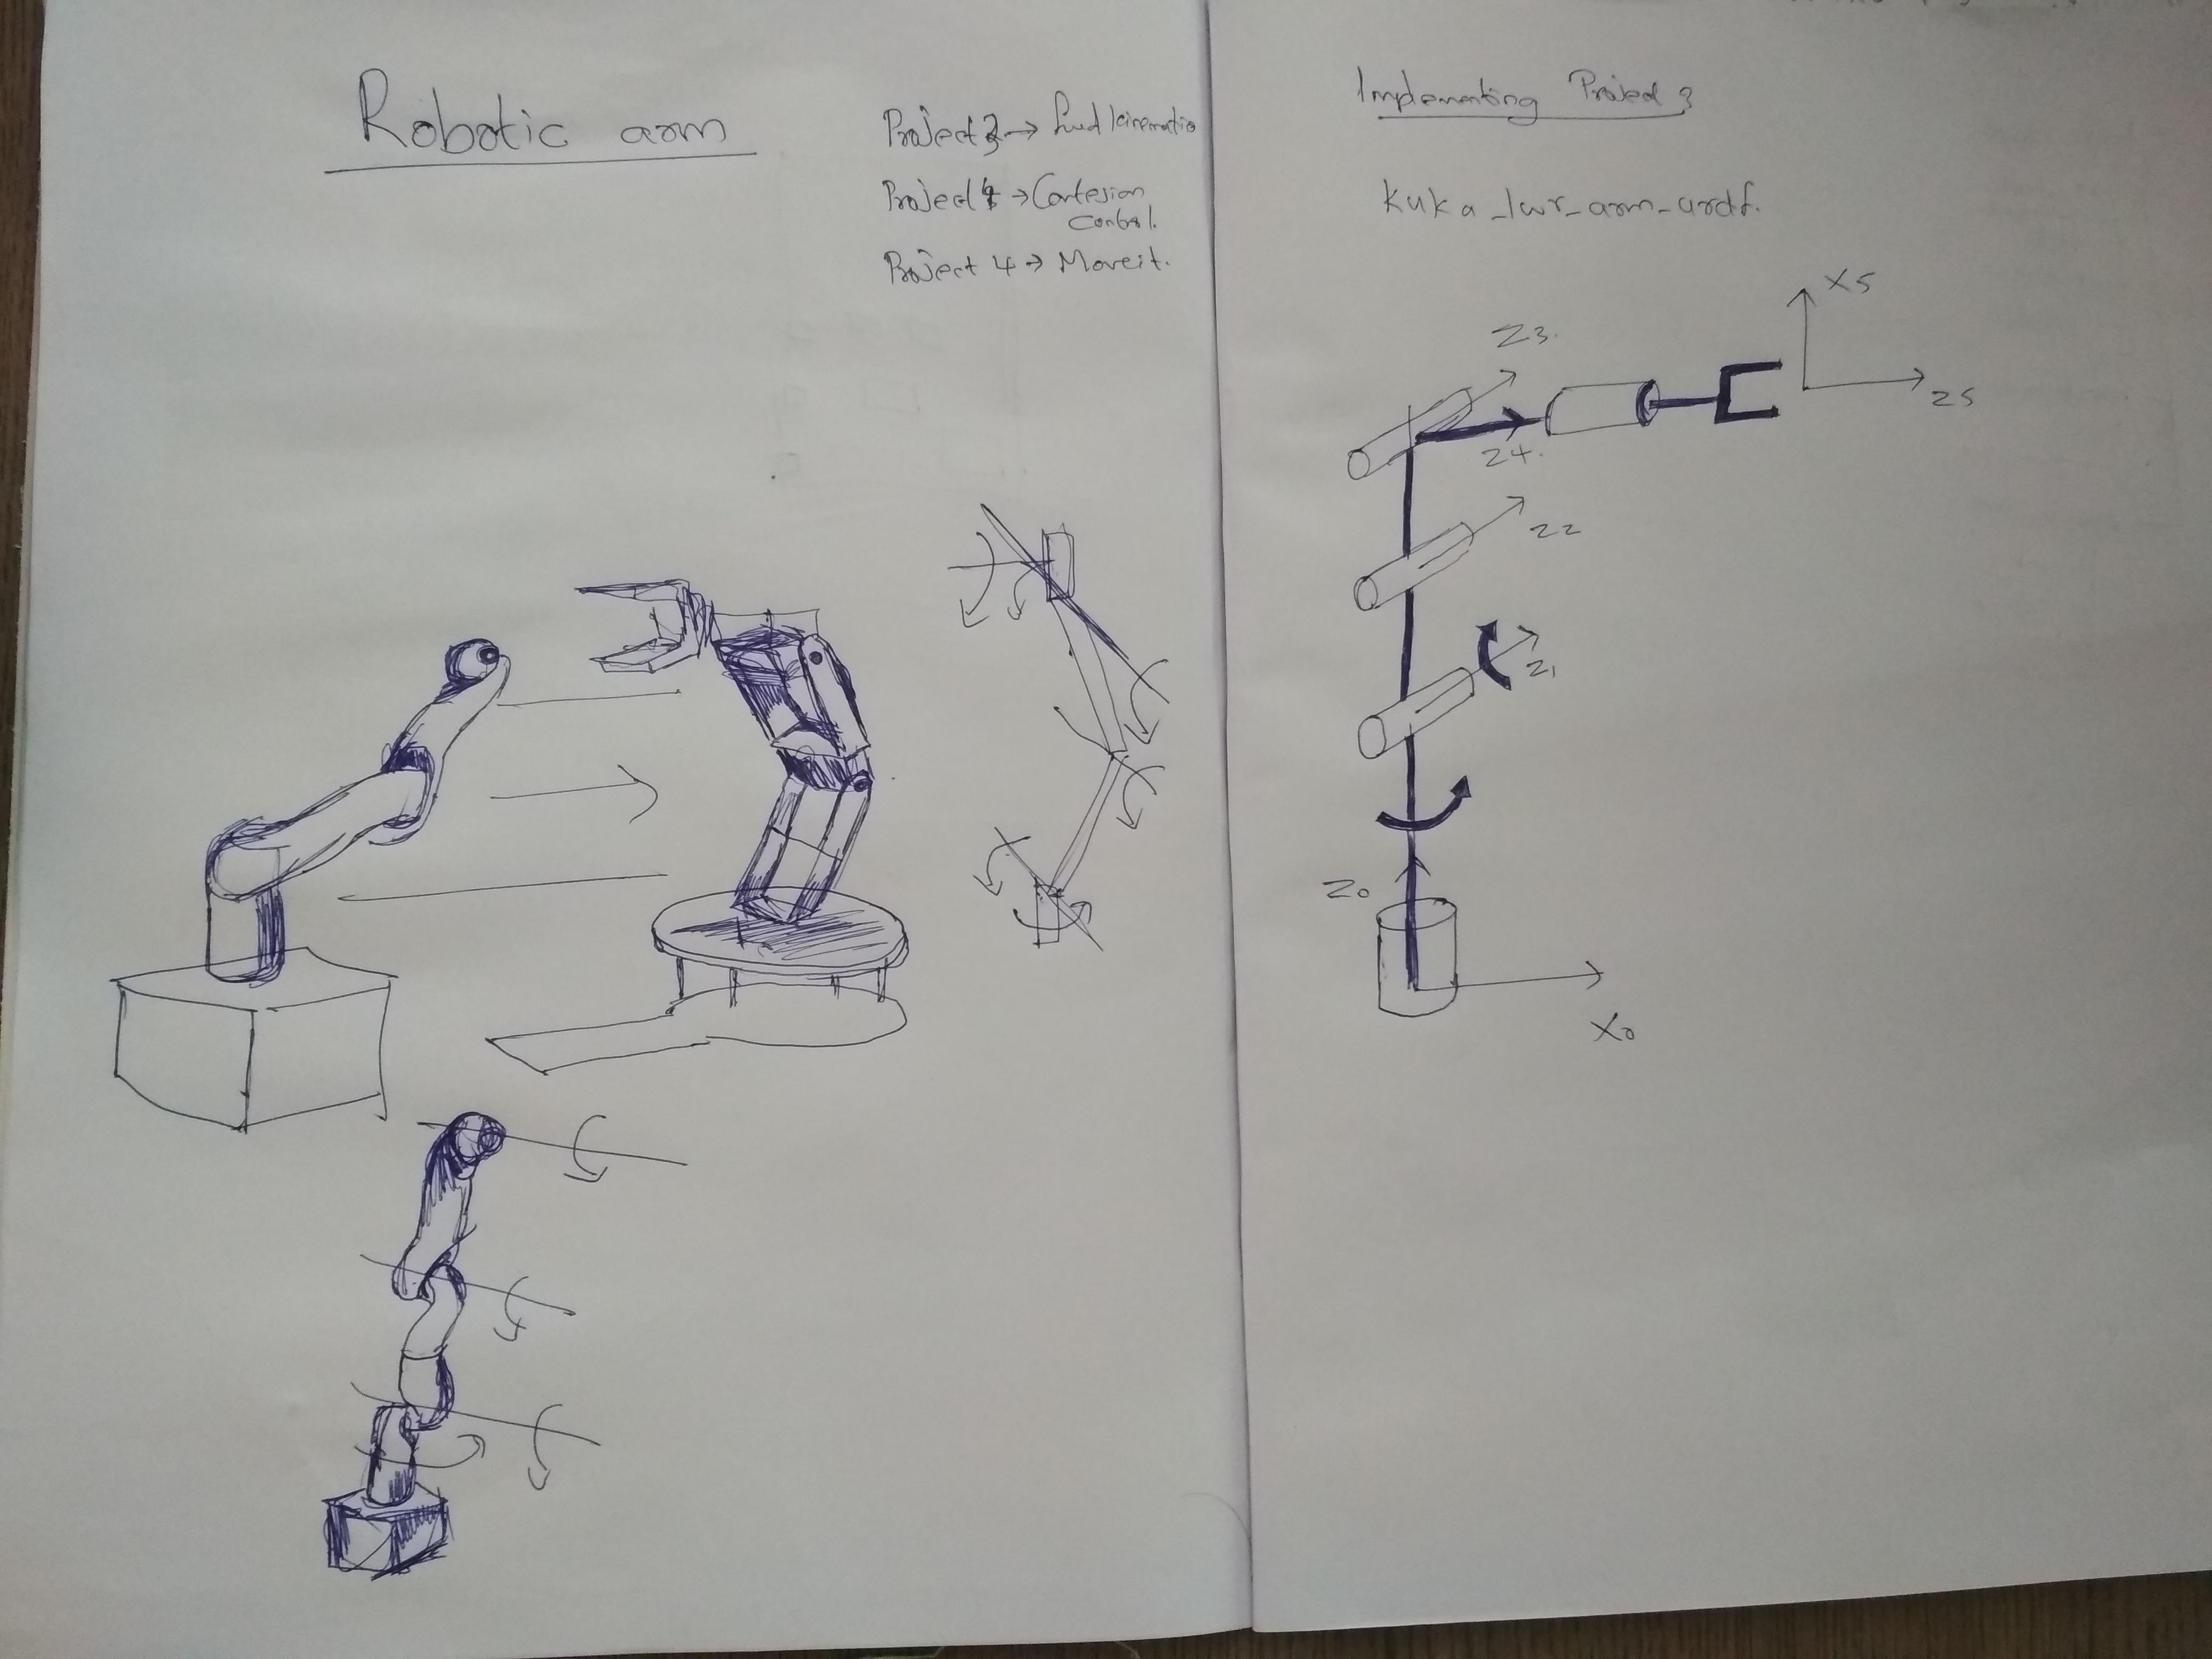 Robotic arm
Project 3 → fwd kinematic
Project 4 → Cartesian
control.
Project 4 → Moveit.
Implementing Project 3
kuka_lwr_arm_urdf.
X5
Z3.
Z5
Z4.
Z2
Z1
Z0
X0